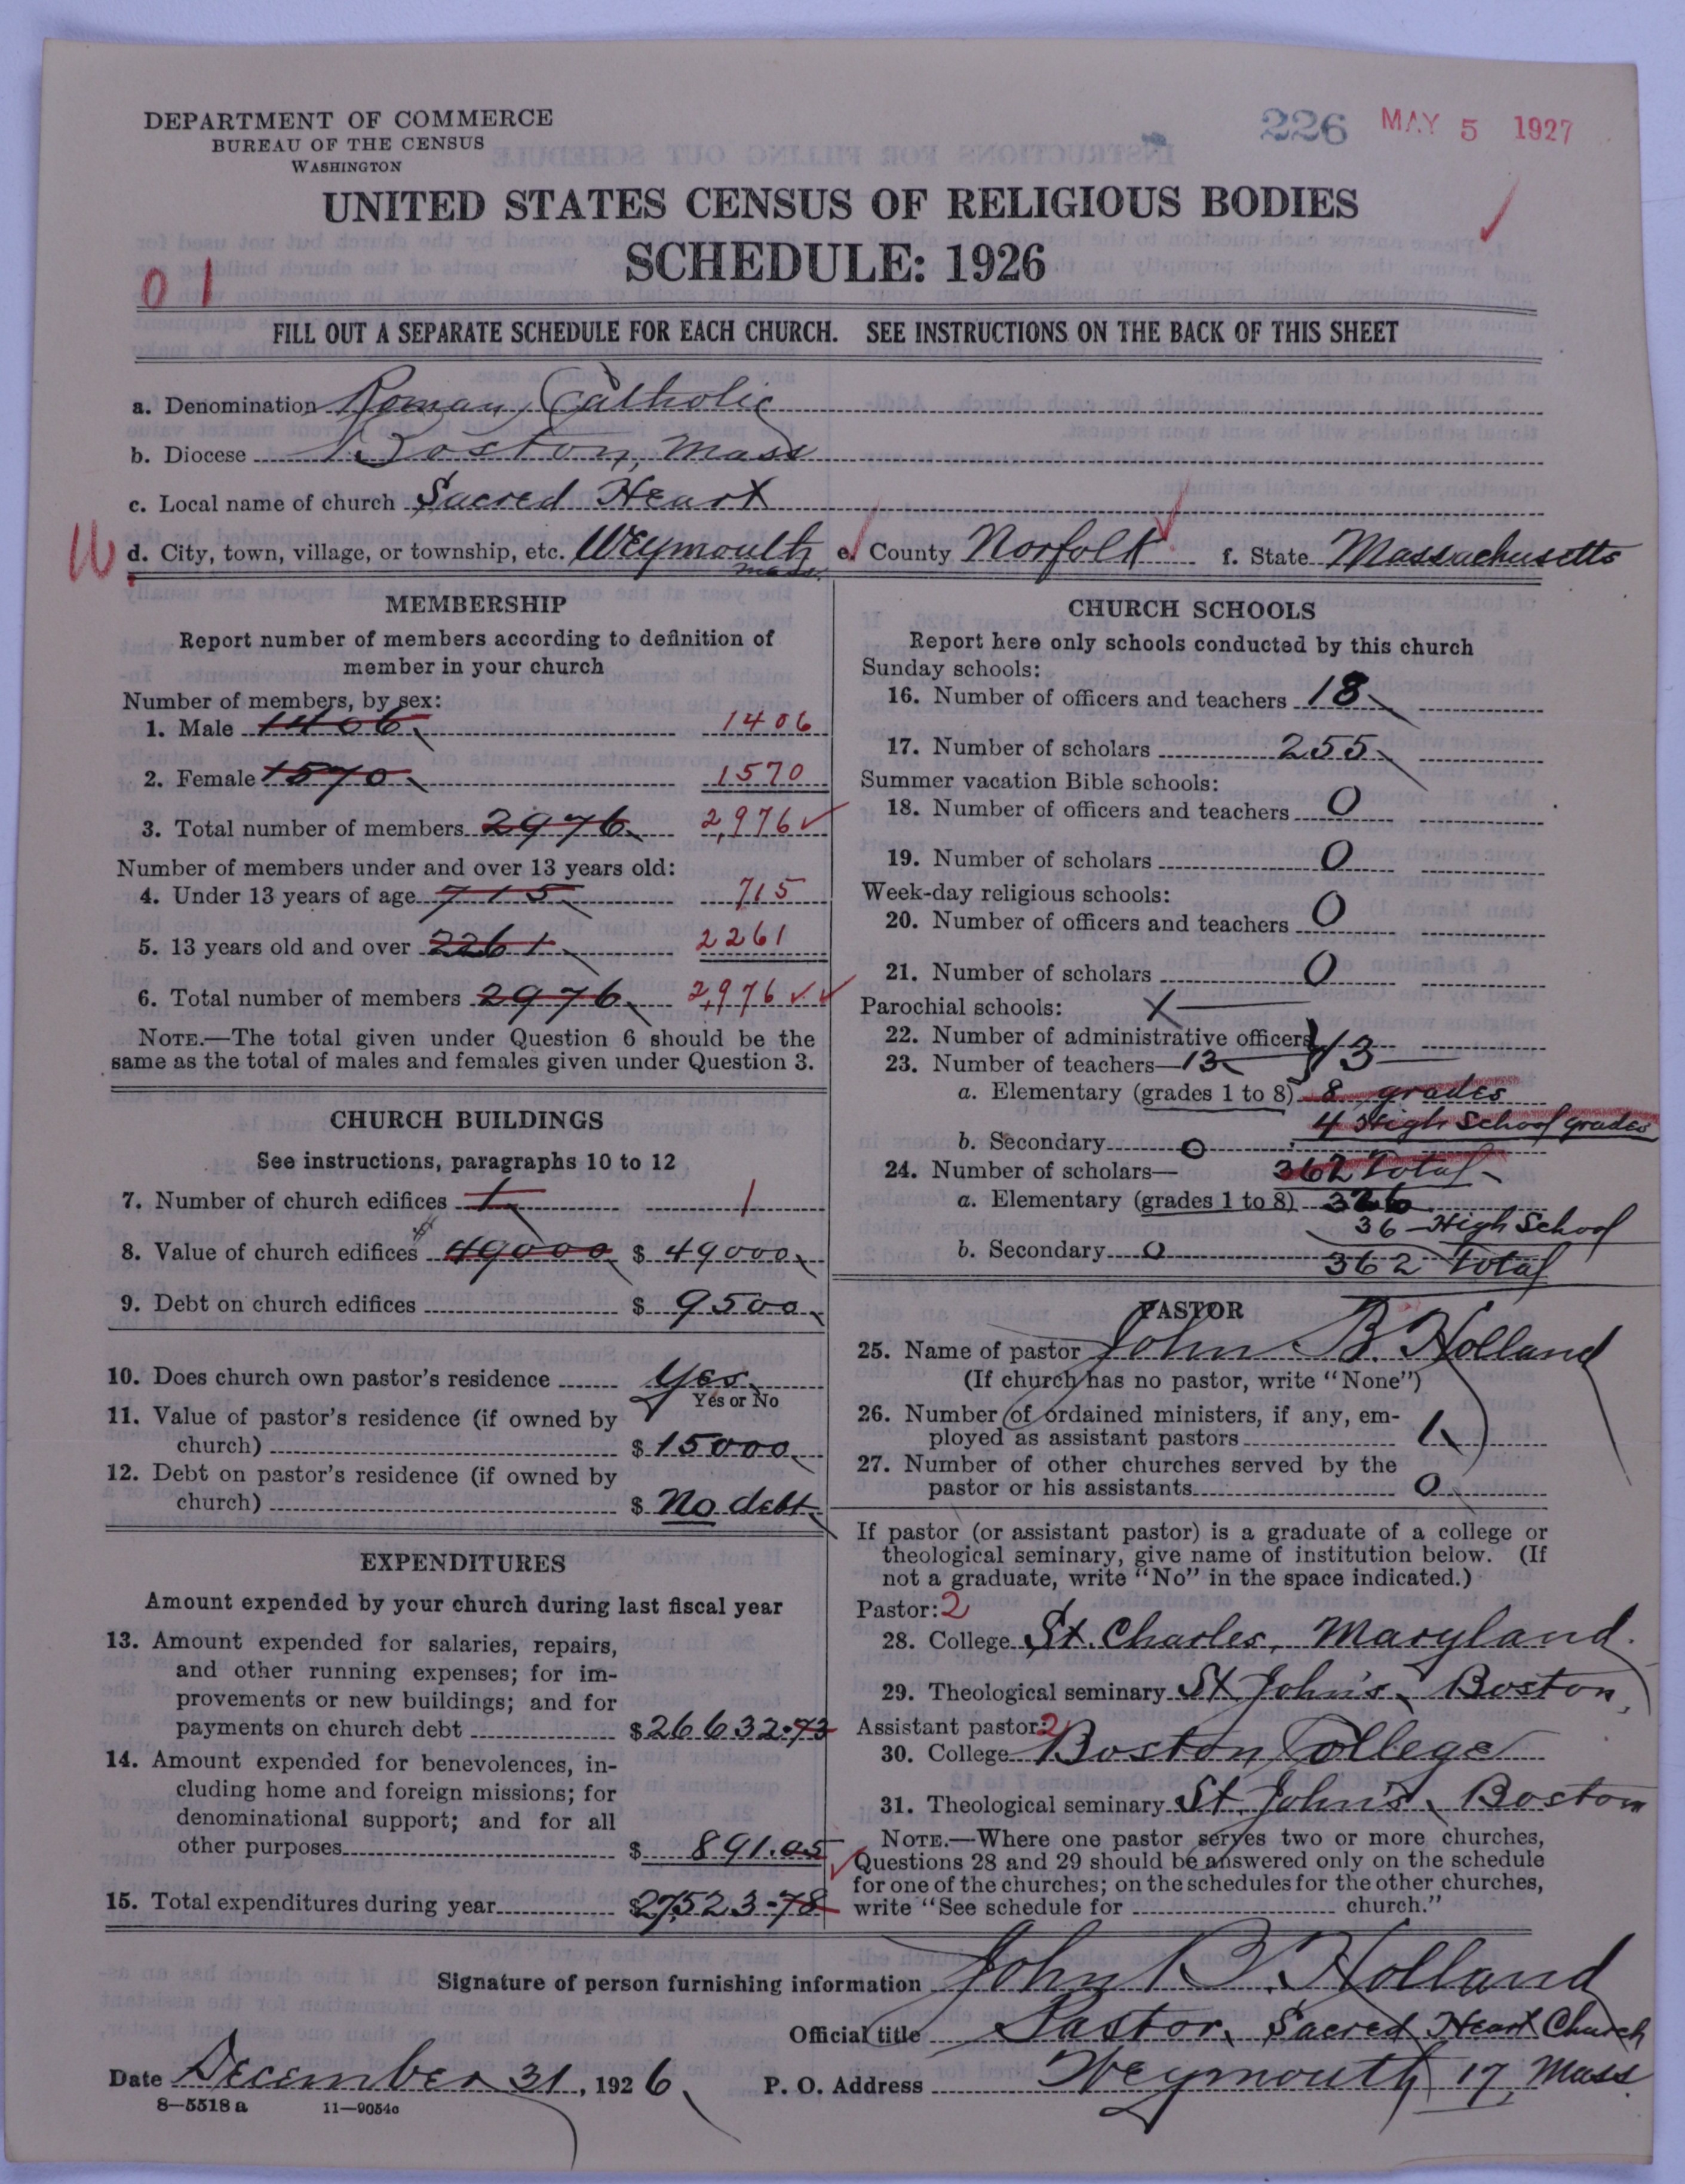 226 MAY 5 1927
DEPARTMENT OF COMMERCE
BUREAU OF THE CENSUS
WASHINGTON
UNITED STATES CENSUS OF RELIGIOUS BODIES
SCHEDULE: 1926
01
FILL OUT A SEPARATE SCHEDULE FOR EACH CHURCH. SEE INSTRUCTIONS ON THE BACK OF THIS SHEET
a. Denomination Roman Catholic
b. Diocese Boston, Mass
c. Local name of church Sacred Heart
d. City, town, village, or township, etc. Weymouth Mass. e. County Norfolk f. State Massachusetts
MEMBERSHIP
Report number of members according to definition of
member in your church
Number of members, by sex:
1. Male 1406 1406
2. Female 1570 1570
3. Total number of members 2976 2,976
Number of members under and over 13 years old:
4. Under 13 years of age 715 715
5. 13 years old and over 2261 2261
6. Total number of members 2976 2,976
NOTE.—The total given under Question 6 should be the
same as the total of males and females given under Question 3.
CHURCH BUILDINGS
See instructions, paragraphs 10 to 12
7. Number of church edifices 1 1
8. Value of church edifices 49000 $ 49000
9. Debt on church edifices $ 9500
10. Does church own pastor's residence Yes
Yes or No
11. Value of pastor's residence (if owned by
church) $ 15000
12. Debt on pastor's residence (if owned by
church) $ No debt
EXPENDITURES
Amount expended by your church during last fiscal year
13. Amount expended for salaries, repairs,
and other running expenses; for im-
provements or new buildings; and for
payments on church debt $ 26632.73
14. Amount expended for benevolences, in-
cluding home and foreign missions; for
denominational support; and for all
other purposes $ 891.05
15. Total expenditures during year $ 27523.78
CHURCH SCHOOLS
Report here only schools conducted by this church
Sunday schools:
16. Number of officers and teachers 18
17. Number of scholars 255
Summer vacation Bible schools:
18. Number of officers and teachers 0
19. Number of scholars 0
Week-day religious schools:
20. Number of officers and teachers 0
21. Number of scholars 0
Parochial schools: X
22. Number of administrative officers
23. Number of teachers—13 13
a. Elementary (grades 1 to 8) 8 grades
4 High School grades
b. Secondary 0
24. Number of scholars— 362 Total
a. Elementary (grades 1 to 8) 326
36 High School
b. Secondary 0 362 Total
PASTOR
25. Name of pastor John B. Holland
(If church has no pastor, write "None")
26. Number of ordained ministers, if any, em-
ployed as assistant pastors 1
27. Number of other churches served by the
pastor or his assistants 0
If pastor (or assistant pastor) is a graduate of a college or
theological seminary, give name of institution below. (If
not a graduate, write "No" in the space indicated.)
Pastor: 2
28. College St. Charles, Maryland.
29. Theological seminary St. John's, Boston,
Assistant pastor: 2
30. College Boston College
31. Theological seminary St. John's, Boston
NOTE.—Where one pastor serves two or more churches,
Questions 28 and 29 should be answered only on the schedule
for one of the churches; on the schedules for the other churches,
write "See schedule for church."
Signature of person furnishing information John B. Holland
Official title Pastor, Sacred Heart Church
Date December 31, 1926 P. O. Address Weymouth 17, Mass.
8—5518 a 11—9054c